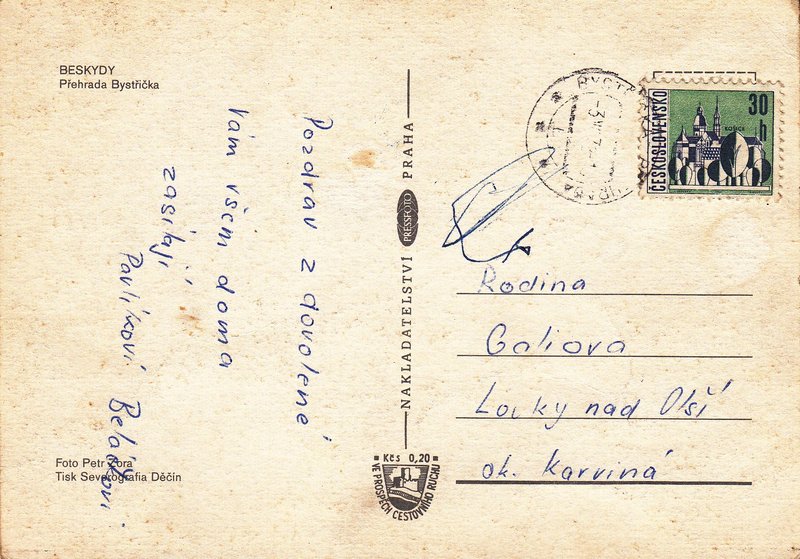 BESKYDY
Přehrada Bystřička
Pozdrav z dovolené
Vám všem doma
zasílají
Pavlíkovi
Foto Petr Zora
Tisk Severografia Děčín
NAKLADATELSTVÍ PRESSFOTO PRAHA
Kčs 0,20
VE PROSPĚCH CESTOVNÍHO RUCHU
ČESKOSLOVENSKO
30 h
KOŠICE
Rodina
Galiova
Louky nad Olší
ok. Karviná